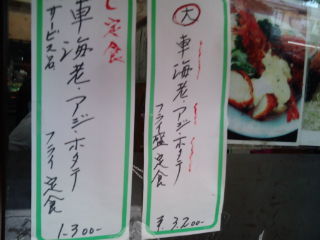 大
車海老・アジ・ホタテ
フライ盛定食
¥3.200-
定食
車海老・アジ・ホタテ
フライ定食
1.300-